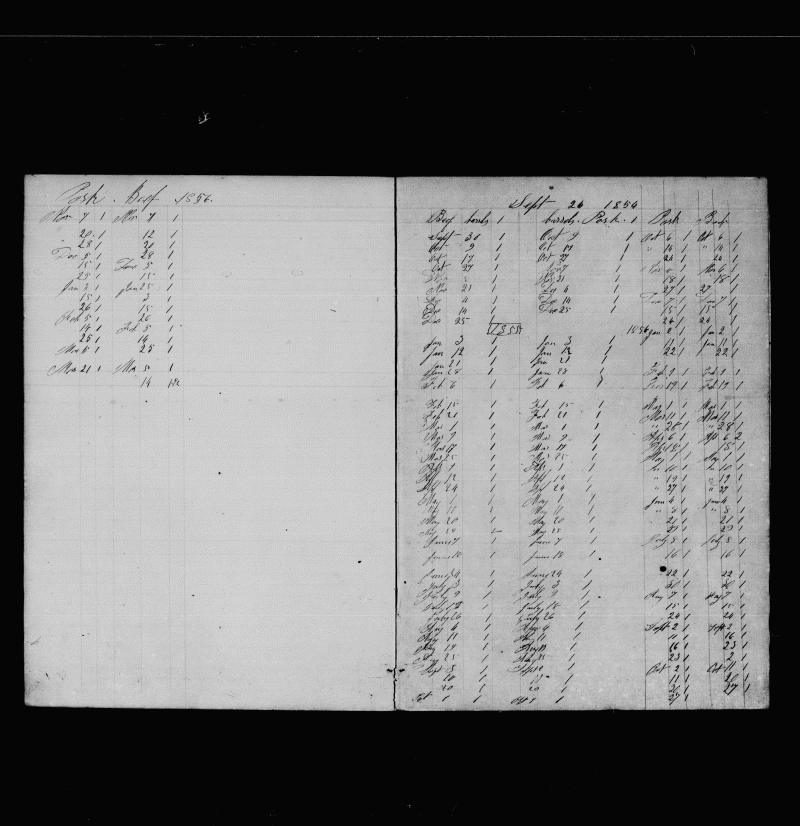 Pork . Beef 1856.
Nov 7 1 Nov 7 1
20 1 12 1
28 1 20 1
Dec 5 1 28 1
15 1 Dec 5 1
25 1 15 1
Jan 3 1 Jan 25 1
15 1 3 1
26 1 15 1
Feb 5 1 26 1
14 1 Feb 5 1
25 1 14 1
Mar 5 1 25 1
Mar 21 1 Mar 5 1
14 1
Sept 26 1854
Beef barrels 1 barrels Pork 1 Pork Beef
Sept 30 1 Oct 9 1 Oct 6 1 Oct 6 1
Oct 9 1 Oct 17 1 " 14 1 " 14 1
Oct 17 1 Oct 27 1 24 1 24 1
Oct 27 1 Nov 6 1 Nov 6 1
18 1 18 1
Nov 21 1 Dec 4 27 1 27 1
Dec 4 1 Dec 14 Dec 7 1 Dec 7 1
Dec 14 1 Dec 25 15 1 15 1
Dec 25 24 1 24 1
1855 1856 Jan 2 1 Jan 2 1
Jan 3 1 Jan 3 1 11 1 Jan 11 1
Jan 12 1 Jan 12 1 22 1 22 1
Jan 21 1 Jan 21 1
Jan 28 1 Jan 28 1 Feb 9 1 Feb 9 1
Feb 6 1 Feb 6 1 19 1 Feb 19 1
Feb 15 1 Feb 15 1 Mar 1 1 Mar 1 1
Feb 21 1 Feb 21 1 Mar 11 1 Mar 11 1
Mar 1 1 Mar 1 1 " 28 1 " 28 1
Mar 7 1 Mar 7 1 Apr 6 1 Apr 6 2
Mar 17 1 Mar 17 1 15 1
Mar 25 1 Mar 25 1 May 1 May 1 1
1 1 1 1 " 10 1 " 10 1
12 1 12 1 " 19 1 " 19 1
24 1 24 1 " 27 1 " 27 1
May 1 1 May 1 1 June 4 1 June 4 1
May 11 1 May 11 1 " 8 1 " 8 1
May 20 1 May 20 1 21 1 21 1
May 28 May 28 1 29 1
June 7 1 June 7 1 July 8 1 July 8 1
June 18 1 June 18 1 16 1 16 1
June 24 1 June 24 1 22 1 22 1
July 3 1 July 3 1 30 1 30 1
July 9 1 July 9 1 Aug 7 1 Aug 7 1
July 18 1 July 18 1 15 1 15 1
July 26 1 July 26 1 24 1 24 1
Aug 4 1 Aug 4 1 Sept 2 1 Sept 2 1
Aug 11 1 Aug 11 1 11 1 16 1
Aug 19 1 Aug 1 16 1 23 1
Aug 25 1 Aug 25 1 23 1 2 1
Sept 3 1 Sept 1 Oct 2 1 Oct 11 1
10 1 1 11 1 20 1
20 1 20 1 20 1 27 1
Oct 1 1 Oct 1 1 27 1